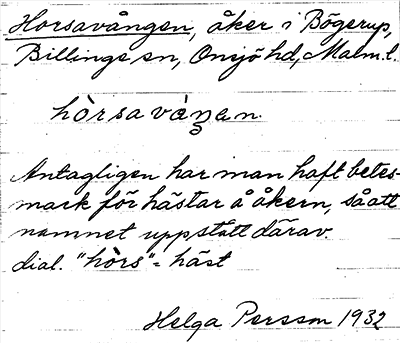 Horsavången, åker i Bögerup,
Billinge sn, Onsjö hd, Malm. l.
hòrsavàŋan.
Antagligen har man haft betes-
mark för hästar å åkern, så att
namnet uppstått därav.
dial. "hòrs" = häst
Helga Persson 1932